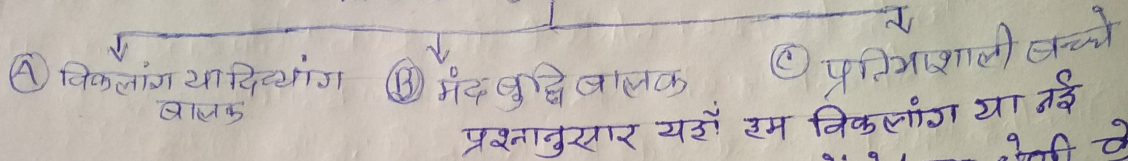 Ⓐ विकलांग या दिव्यांग बालक
Ⓑ मंद बुद्धि बालक
Ⓒ प्रतिभाशाली बच्चे
प्रश्नानुसार यहाँ हम विकलांग या नई